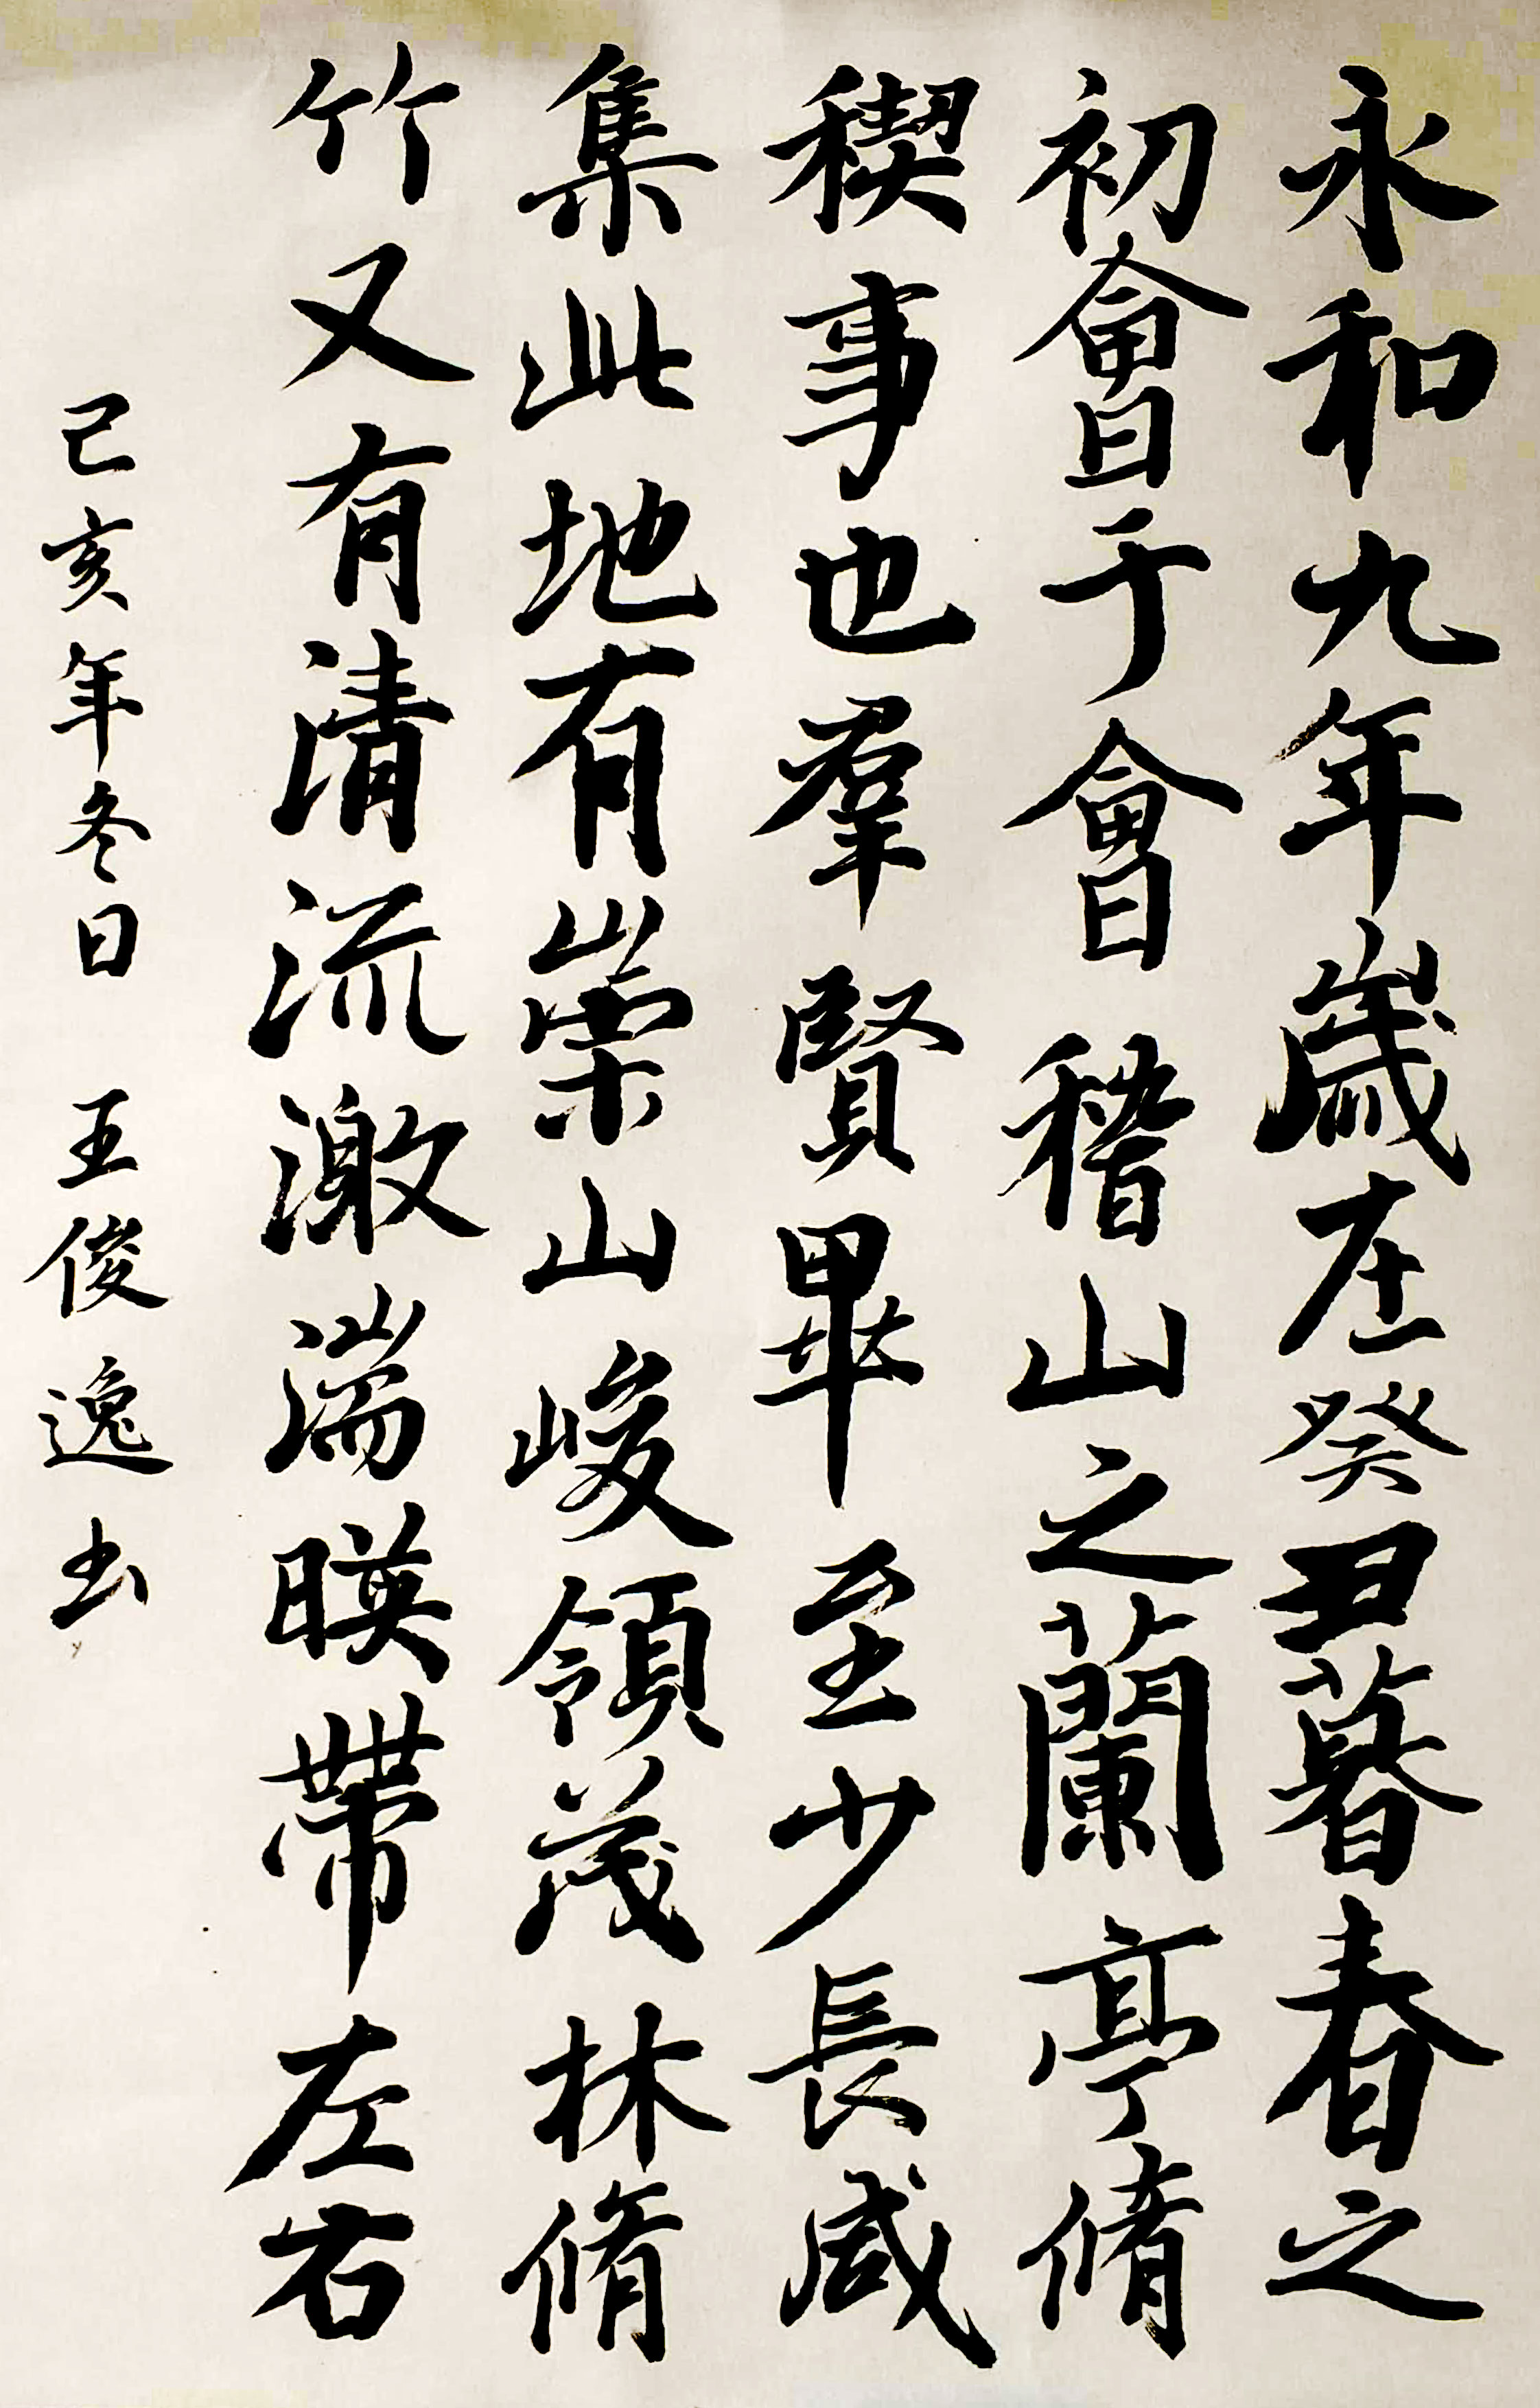 永和九年歲在癸丑暮春之
初會于會稽山之蘭亭脩
稧事也羣賢畢至少長咸
集此地有崇山峻領茂林脩
竹又有清流激湍暎帶左右
己亥年冬日 王俊逸书